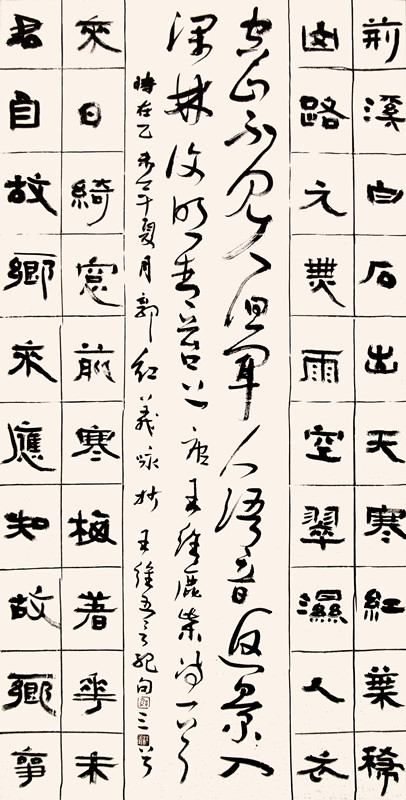 荊溪白石出天寒紅葉稀
山路元無雨空翠濕人衣
空山不見人但聞人語音返景入
深林復照青苔上唐王維鹿柴詩一首
時在乙未年夏月郭紅義詠抄王維五言絕句三首
君自故鄉來應知故鄉事
來日綺窓前寒梅著華未